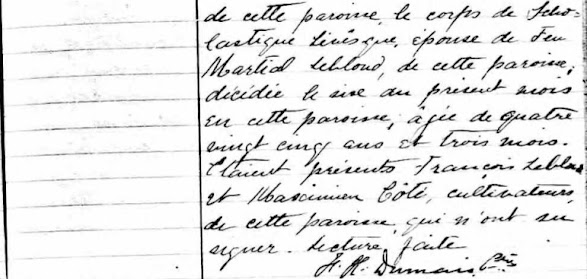 de cette paroisse, le corps de Scho-
lastique Lévêsque, épouse de feu
Martial Leblond, de cette paroisse,
décédée le six du présent mois
en cette paroisse, âgée de quatre
vingt cinq ans et trois mois.
Etaient présents François Leblond
et Maximien Côté, cultivateurs,
de cette paroisse, qui n'ont su
signer. Lecture faite
F. H. Dumais Ptre